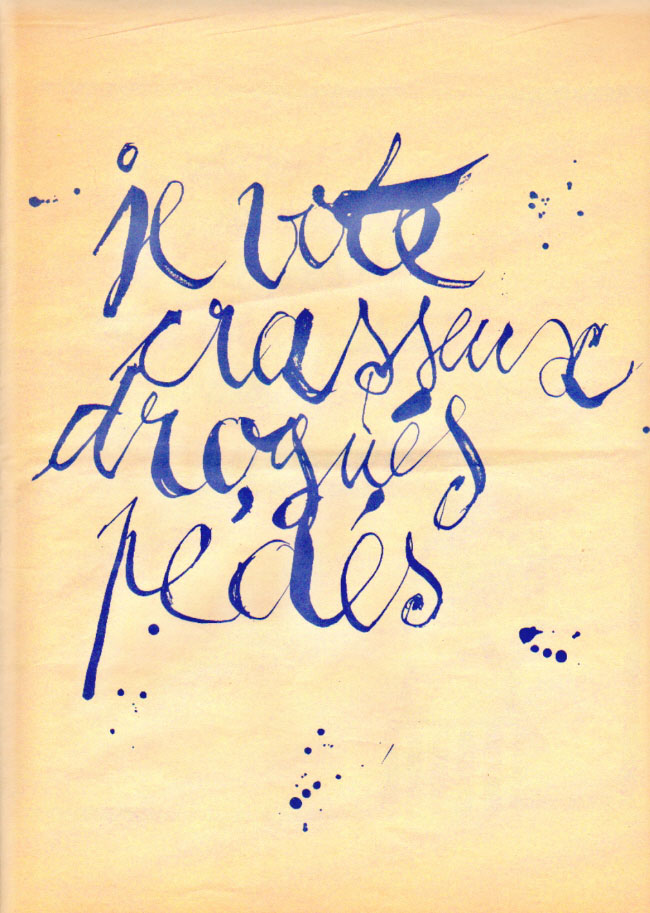 je vote
crasseux
drogués
pédés